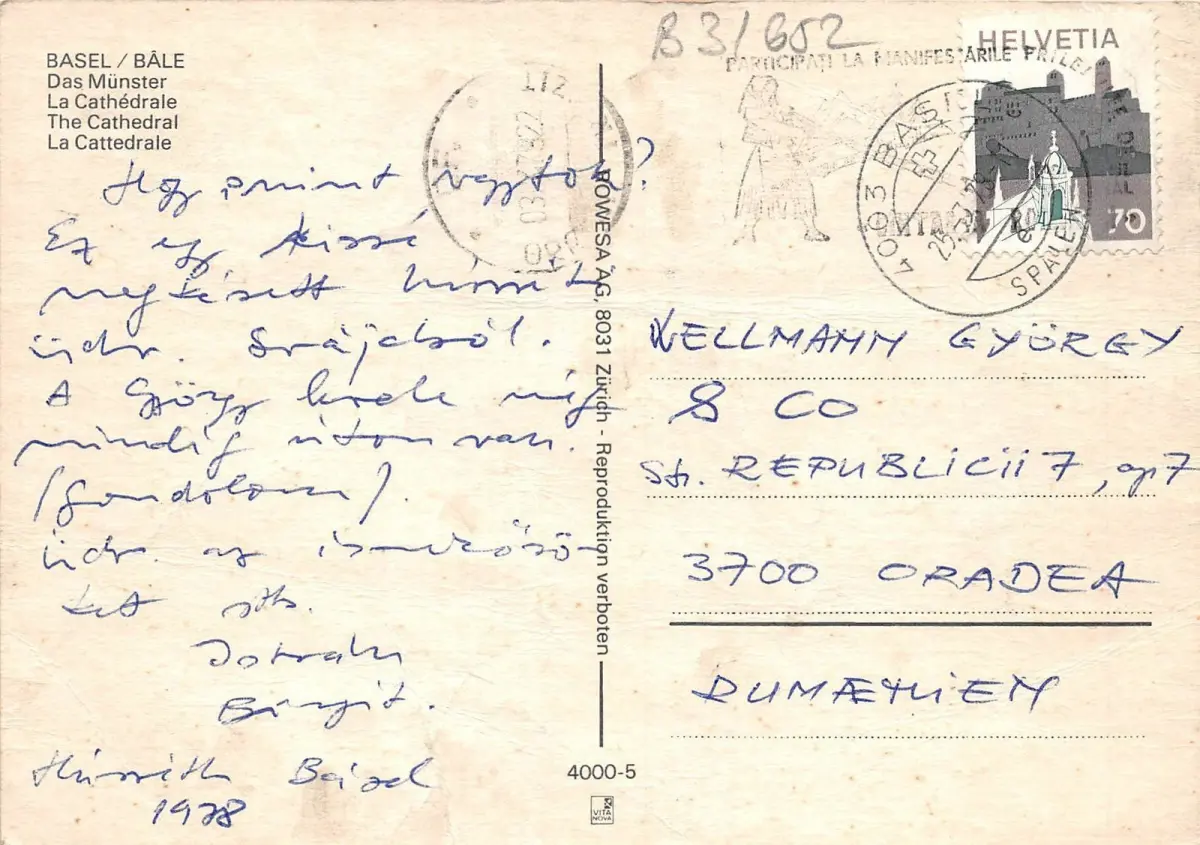 BASEL / BÂLE
Das Münster
La Cathédrale
The Cathedral
La Cattedrale
Hogy mint vagytok?
Ez egy kissé
megkésett húsvéti
üdv. Svájcból.
A György levele még
mindig úton van.
(gondolom).
Üdv. az ismerősö-
ket stb.
Birgit.
Húsvéth Basel
1978
ROWESA AG, 8031 Zürich - Reproduktion verboten
4000-5
VITA
NOVA
B 3/652
HELVETIA
70
PARTICIPAȚI LA MANIFESTĂRILE PRILEJ
4003 BAS
SPALEN
WELLMANN GYÖRGY
& CO
Str. REPUBLICII 7, ap 7
3700 ORADEA
RUMÆNIEN